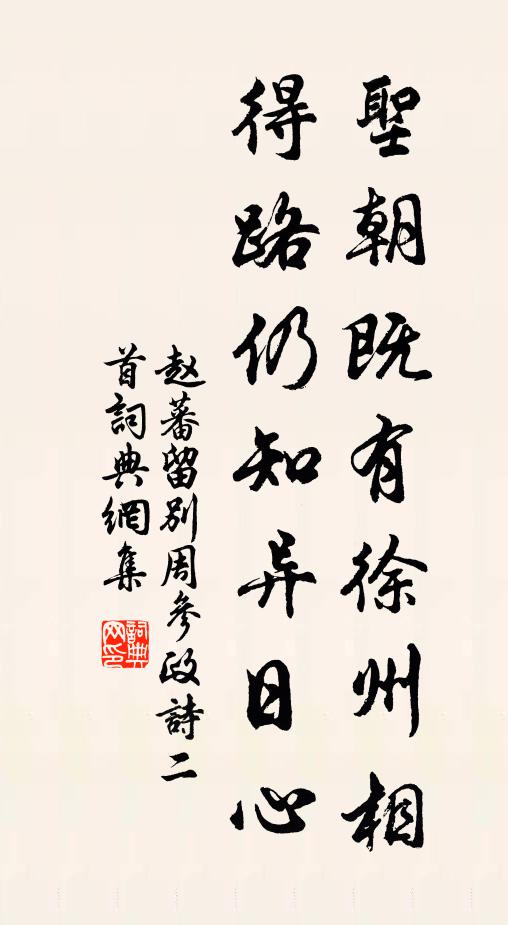 聖朝既有徐州相
得路仍知异日心
赵蕃留别周參政詩二
首詞典網集
詞典网印